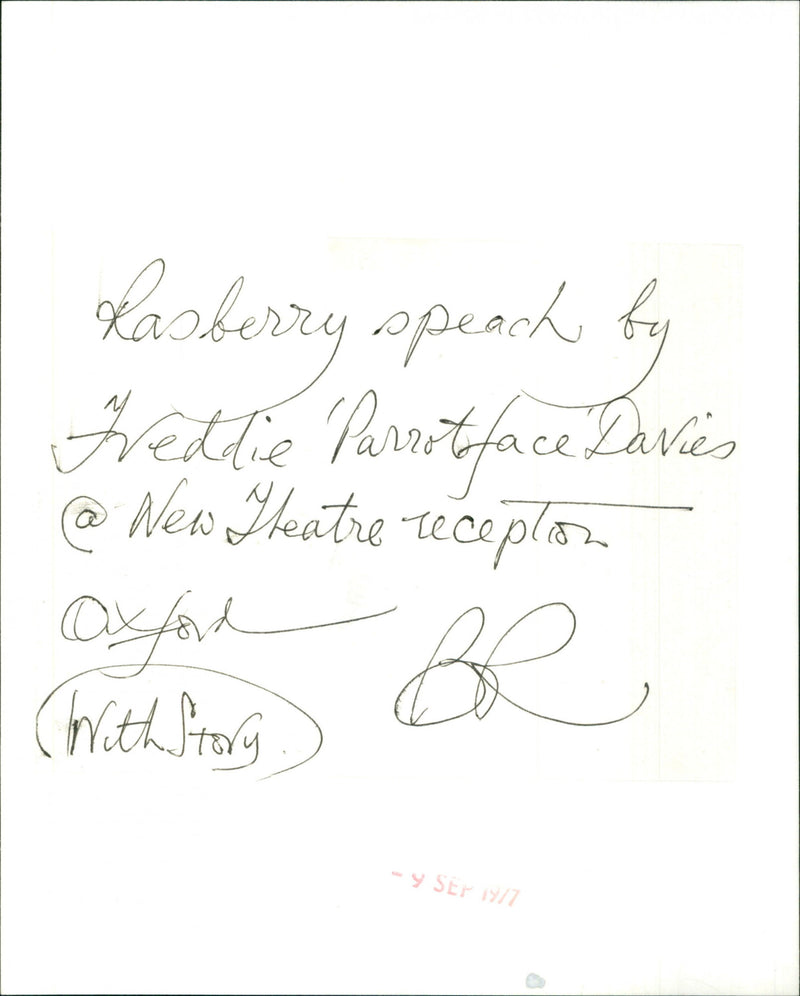 Rasberry speach by
Freddie 'Parrotface' Davies
@ New Theatre reception
Oxford
BR
With Story
- 9 SEP 1977